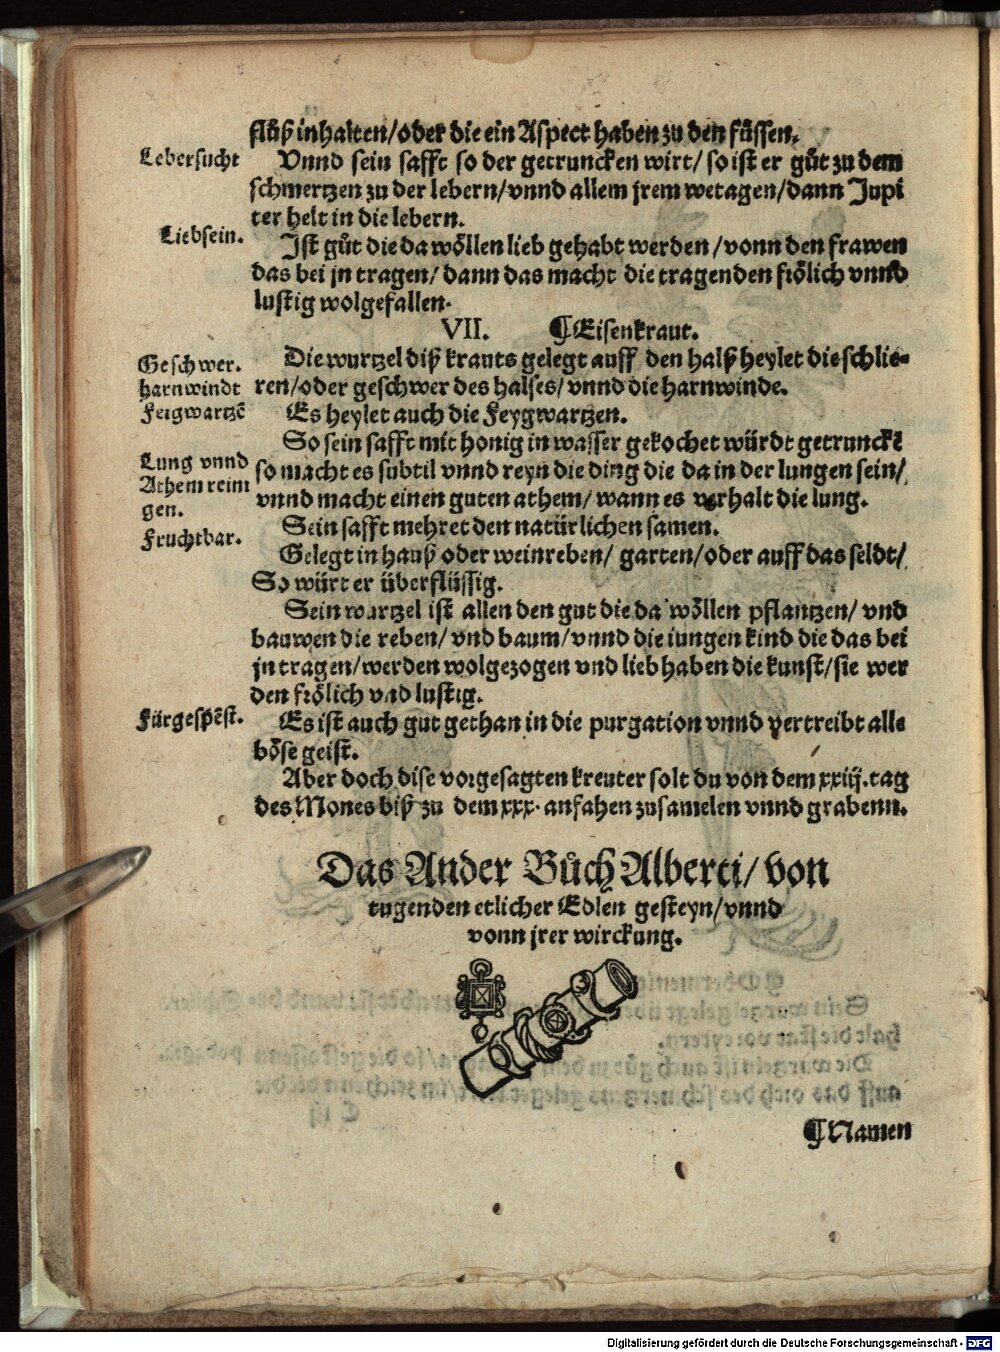 flüß inhalten/oder die ein Aspect haben zu den füssen.
Lebersucht
Vnnd sein safft so der getruncken wirt/ so ist er gůt zu dem
schmertzen zu der lebern/vnnd allem jrem wetagen/dann Jupi
ter helt in die lebern.
Liebsein.
Ist gůt die da wöllen lieb gehabt werden/vonn den frawen
das bei jn tragen/ dann das macht die tragenden frölich vnnd
lustig wolgefallen.
VII. ¶Eisenkraut.
Geschwer.
Die wurtzel diß krauts gelegt auff den halß heylet die schlie-
harnwindt
ren/oder geschwer des halses/vnnd die harnwinde.
Feigwartzē
Es heylet auch die Feygwartzen.
So sein safft mit honig in wasser gekochet würdt getrunckē
Lung vnnd
so macht es subtil vnnd reyn die ding die da in der lungen sein/
Athem reini
vnnd macht einen guten athem/wann es verhalt die lung.
gen.
Sein safft mehret den natürlichen samen.
Fruchtbar.
Gelegt in hauß oder weinreben/ garten/oder auff das feldt/
So würt er überflüssig.
Sein wurtzel ist allen den gut die da wöllen pflantzen/ vnd
bauwen die reben/vnd baum/vnnd die iungen kind die das bei
jn tragen/werden wolgezogen vnd lieb haben die kunst/sie wer
den frölich vnd lustig.
Fürgespēst.
Es ist auch gut gethan in die purgation vnnd vertreibt alle
böse geist.
Aber doch dise vorgesagten kreuter solt du von dem xxiij. tag
des Mones biß zu dem xxx. anfahen zusamelen vnnd grabenn.
Das Ander Bůch Alberti/von
tugenden etlicher Edlen gesteyn/vnnd
vonn jrer wirckung.
¶Namen
Digitalisierung gefördert durch die Deutsche Forschungsgemeinschaft - DFG